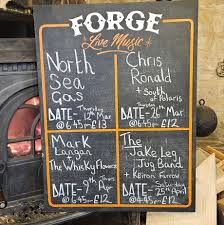 FORGE
Live Music
North
Sea
Gas
DATE- Thursday
12th Mar
@ 6.45pm £13
Chris
Ronald
+ South of Polaris
DATE- Thursday
26th Mar
@ 6.45pm £12
Mark
Langan
+ The Whiskyflowerz
DATE- Thurs
9th Apr
@ 6.45pm £12
The
Jake Leg
Jug Band
+ Keiran Farrow
DATE- Saturday
25th April
@ 6.45pm £12